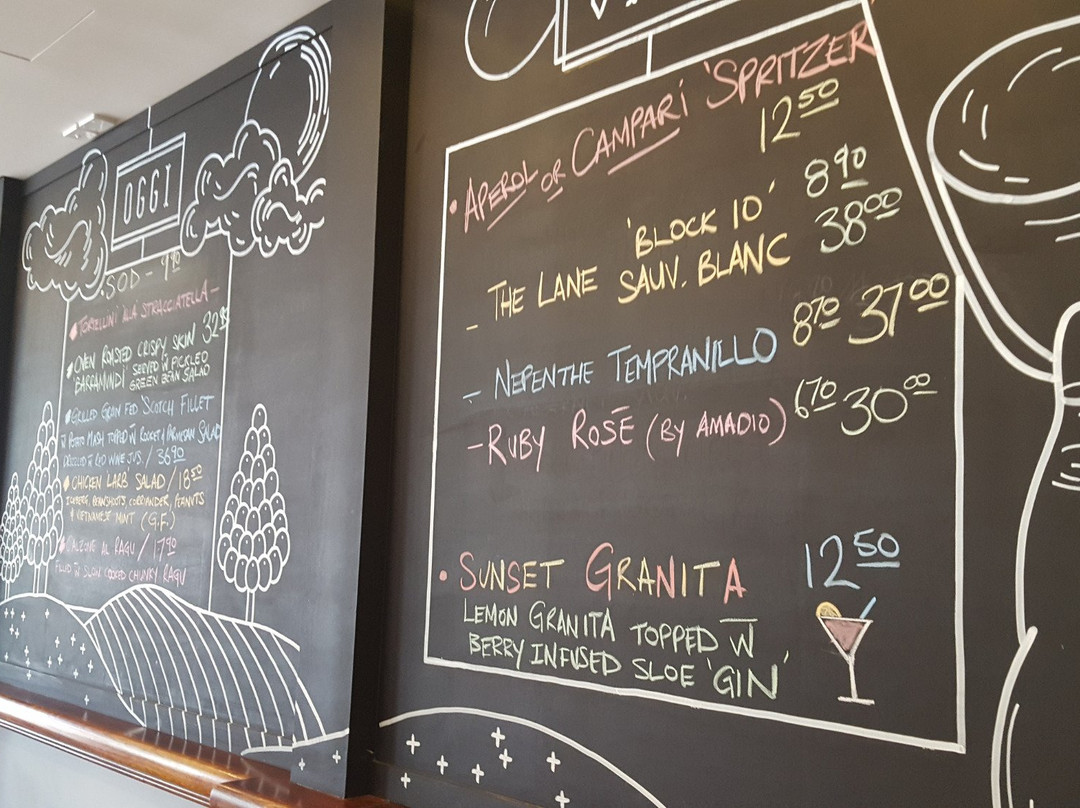 OGGI
SOD - 9.90
TORTELLINI 'ALLA' STRACCIATELLA -
OVEN ROASTED CRISPY SKIN 32
BARRAMUNDI SERVED W PICKLED
GREEN BEAN SALAD
GRILLED GRAIN FED 'SCOTCH FILLET
W POTATO MASH TOPPED W ROCKET & PARMESAN SALAD
DRIZZLED W RED WINE JUS. / 36.90
CHICKEN LARB' SALAD / 18.50
ICEBERG, BEANSHOOTS, CORIANDER, PEANUTS
& VIETNAMESE MINT (G.F.)
CALZONE AL RAGU / 17.90
FILLED W SLOW COOKED CHUNKY RAGU
• APEROL OR CAMPARI 'SPRITZER
12.50
- THE LANE 'BLOCK 10' 8.90
SAUV. BLANC 38.00
- NEPENTHE TEMPRANILLO 8.70 37.00
- RUBY ROSE (BY AMADIO) 6.70 30.00
• SUNSET GRANITA 12.50
LEMON GRANITA TOPPED W
BERRY INFUSED SLOE 'GIN'